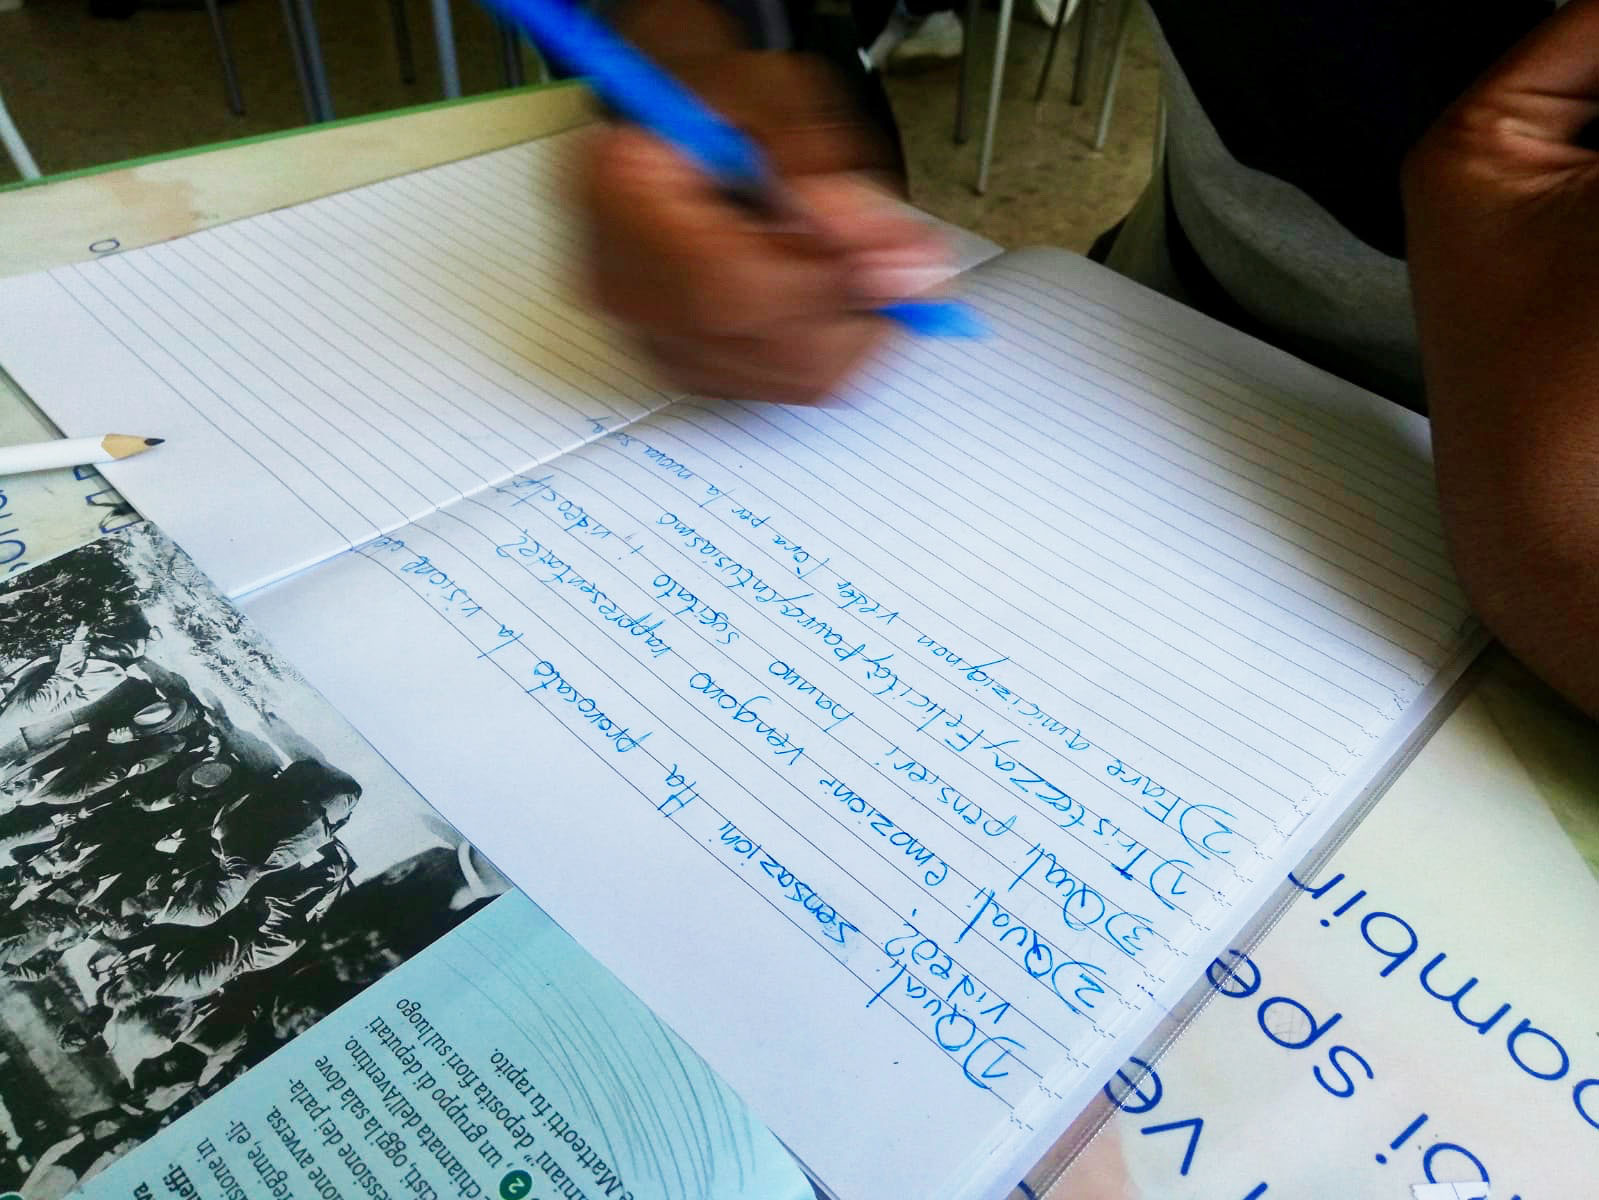 1) Quali sensazioni Ha provosato la visione del
video?
2) Quali emozioni vengono rappresentate?
3) Quali pensieri hanno sucitato i, videoclip
1) Tristezza, Felicità, Paura, entusiasmo
2) Fare amicizia, non veder l'ora per la nuova
e Matteotti fu rapito.
", un gruppo di deputati
niniani" deposita fiori sul luogo
chiamata dell'Aventino.
cisti, oggi la sala dove
essione dei parla-
ione avversa.
regime, eli-
sione in
2
i spe
bambin
ve